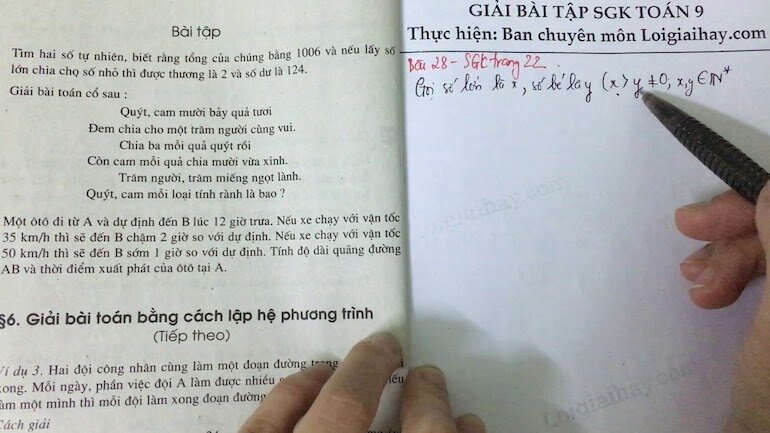 Bài tập
Tìm hai số tự nhiên, biết rằng tổng của chúng bằng 1006 và nếu lấy số
lớn chia cho số nhỏ thì được thương là 2 và số dư là 124.
Giải bài toán cổ sau :
Quýt, cam mười bảy quả tươi
Đem chia cho một trăm người cùng vui.
Chia ba mỗi quả quýt rồi
Còn cam mỗi quả chia mười vừa xinh.
Trăm người, trăm miếng ngọt lành.
Quýt, cam mỗi loại tính rành là bao ?
Một ôtô đi từ A và dự định đến B lúc 12 giờ trưa. Nếu xe chạy với vận tốc
35 km/h thì sẽ đến B chậm 2 giờ so với dự định. Nếu xe chạy với vận tốc
50 km/h thì sẽ đến B sớm 1 giờ so với dự định. Tính độ dài quãng đường
AB và thời điểm xuất phát của ôtô tại A.
§6. Giải bài toán bằng cách lập hệ phương trình
(Tiếp theo)
Ví dụ 3. Hai đội công nhân cùng làm một đoạn đường
xong. Mỗi ngày, phần việc đội A làm được nhiều
làm một mình thì mỗi đội làm xong đoạn đường
Cách giải
GIẢI BÀI TẬP SGK TOÁN 9
Thực hiện: Ban chuyên môn Loigiaihay.com
Bài 28 - SGK trang 22
Gọi số lớn là x, số bé là y (x > y ≠ 0; x,y ∈ N*